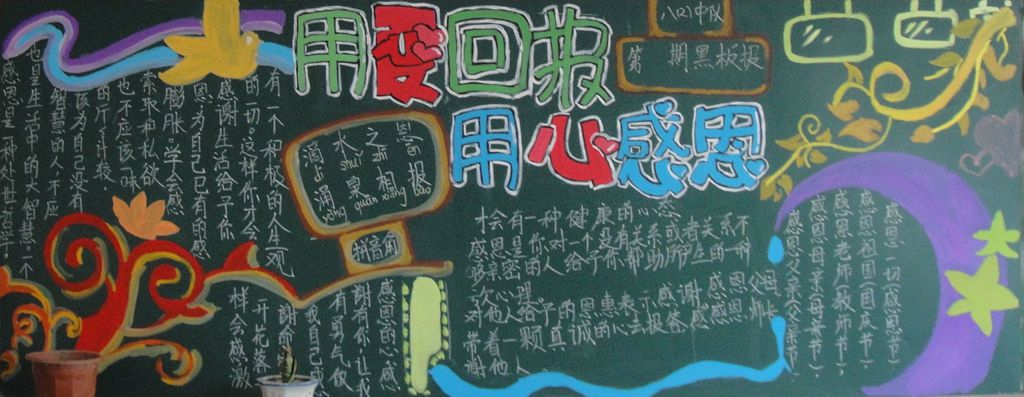 用爱回报
用心感恩
八(2)中队
第 期黑板报
滴水之恩
shuǐ zhī ēn
涌泉相报
yǒng quán xiāng bào
拼音角
感恩是一种处世哲学
也是生活中的大智慧。一个
智慧的人,不应
该为自己没有
的斤斤计较,
也不应该一味
索取和私欲
脑胀,学会感
恩为自己已有的感
感谢生活给予你
的一切。这样你才会
有一个和积极的人生观
才会有一种健康的心态
感恩是你对一个没有关系或者关系不
够亲密的人给予你帮助所产生的一种
心理
对他人给予的恩惠表示感谢,感恩父母
带着一颗真诚的心去报答感恩师长
谢他人
感恩的心,感
谢有你让我
有勇气做
我自己感
谢命
开花落
样会感激
感恩一切(感恩节)、
感恩祖国(国庆节)、
感恩老师(教师节)、
感恩母亲(母亲节)、
感恩父亲(父亲节)、